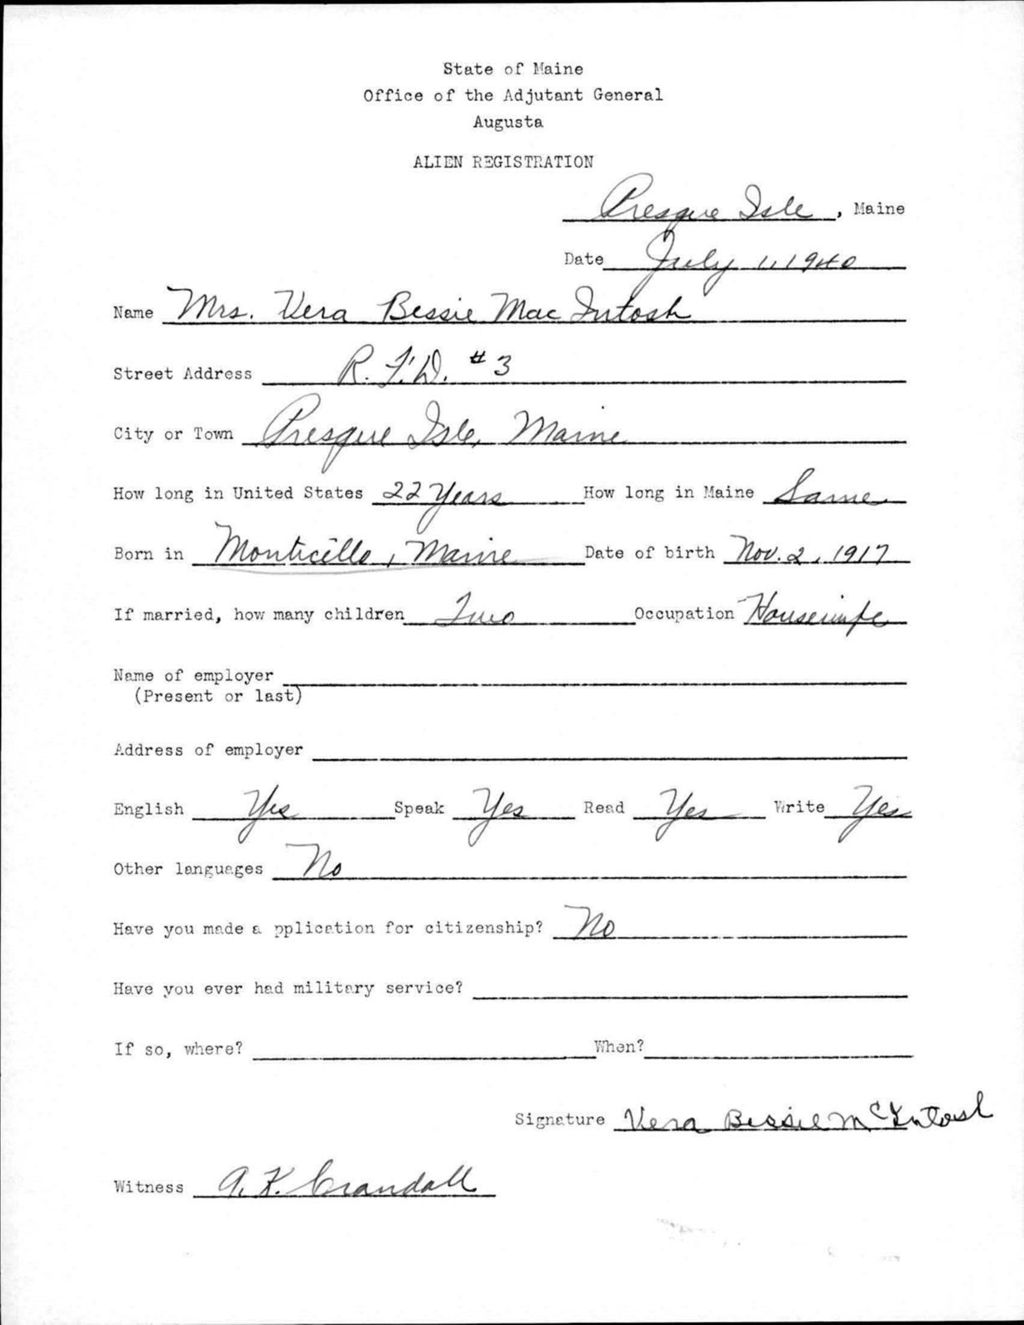 State of Maine
Office of the Adjutant General
Augusta
ALIEN REGISTRATION
Presque Isle, Maine
Date July 1, 1940
Name Mrs. Vera Bessie Mac Intosh
Street Address R.F.D. #3
City or Town Presque Isle, Maine
How long in United States 22 Years How long in Maine Same
Born in Monticello, Maine Date of birth Nov. 2, 1917
If married, how many children Two Occupation Housewife
Name of employer
(Present or last)
Address of employer
English Yes Speak Yes Read Yes Write Yes
Other languages No
Have you made a pplication for citizenship? No
Have you ever had military service?
If so, where? When?
Signature Vera Bessie McIntosh
Witness A. K. Crandall